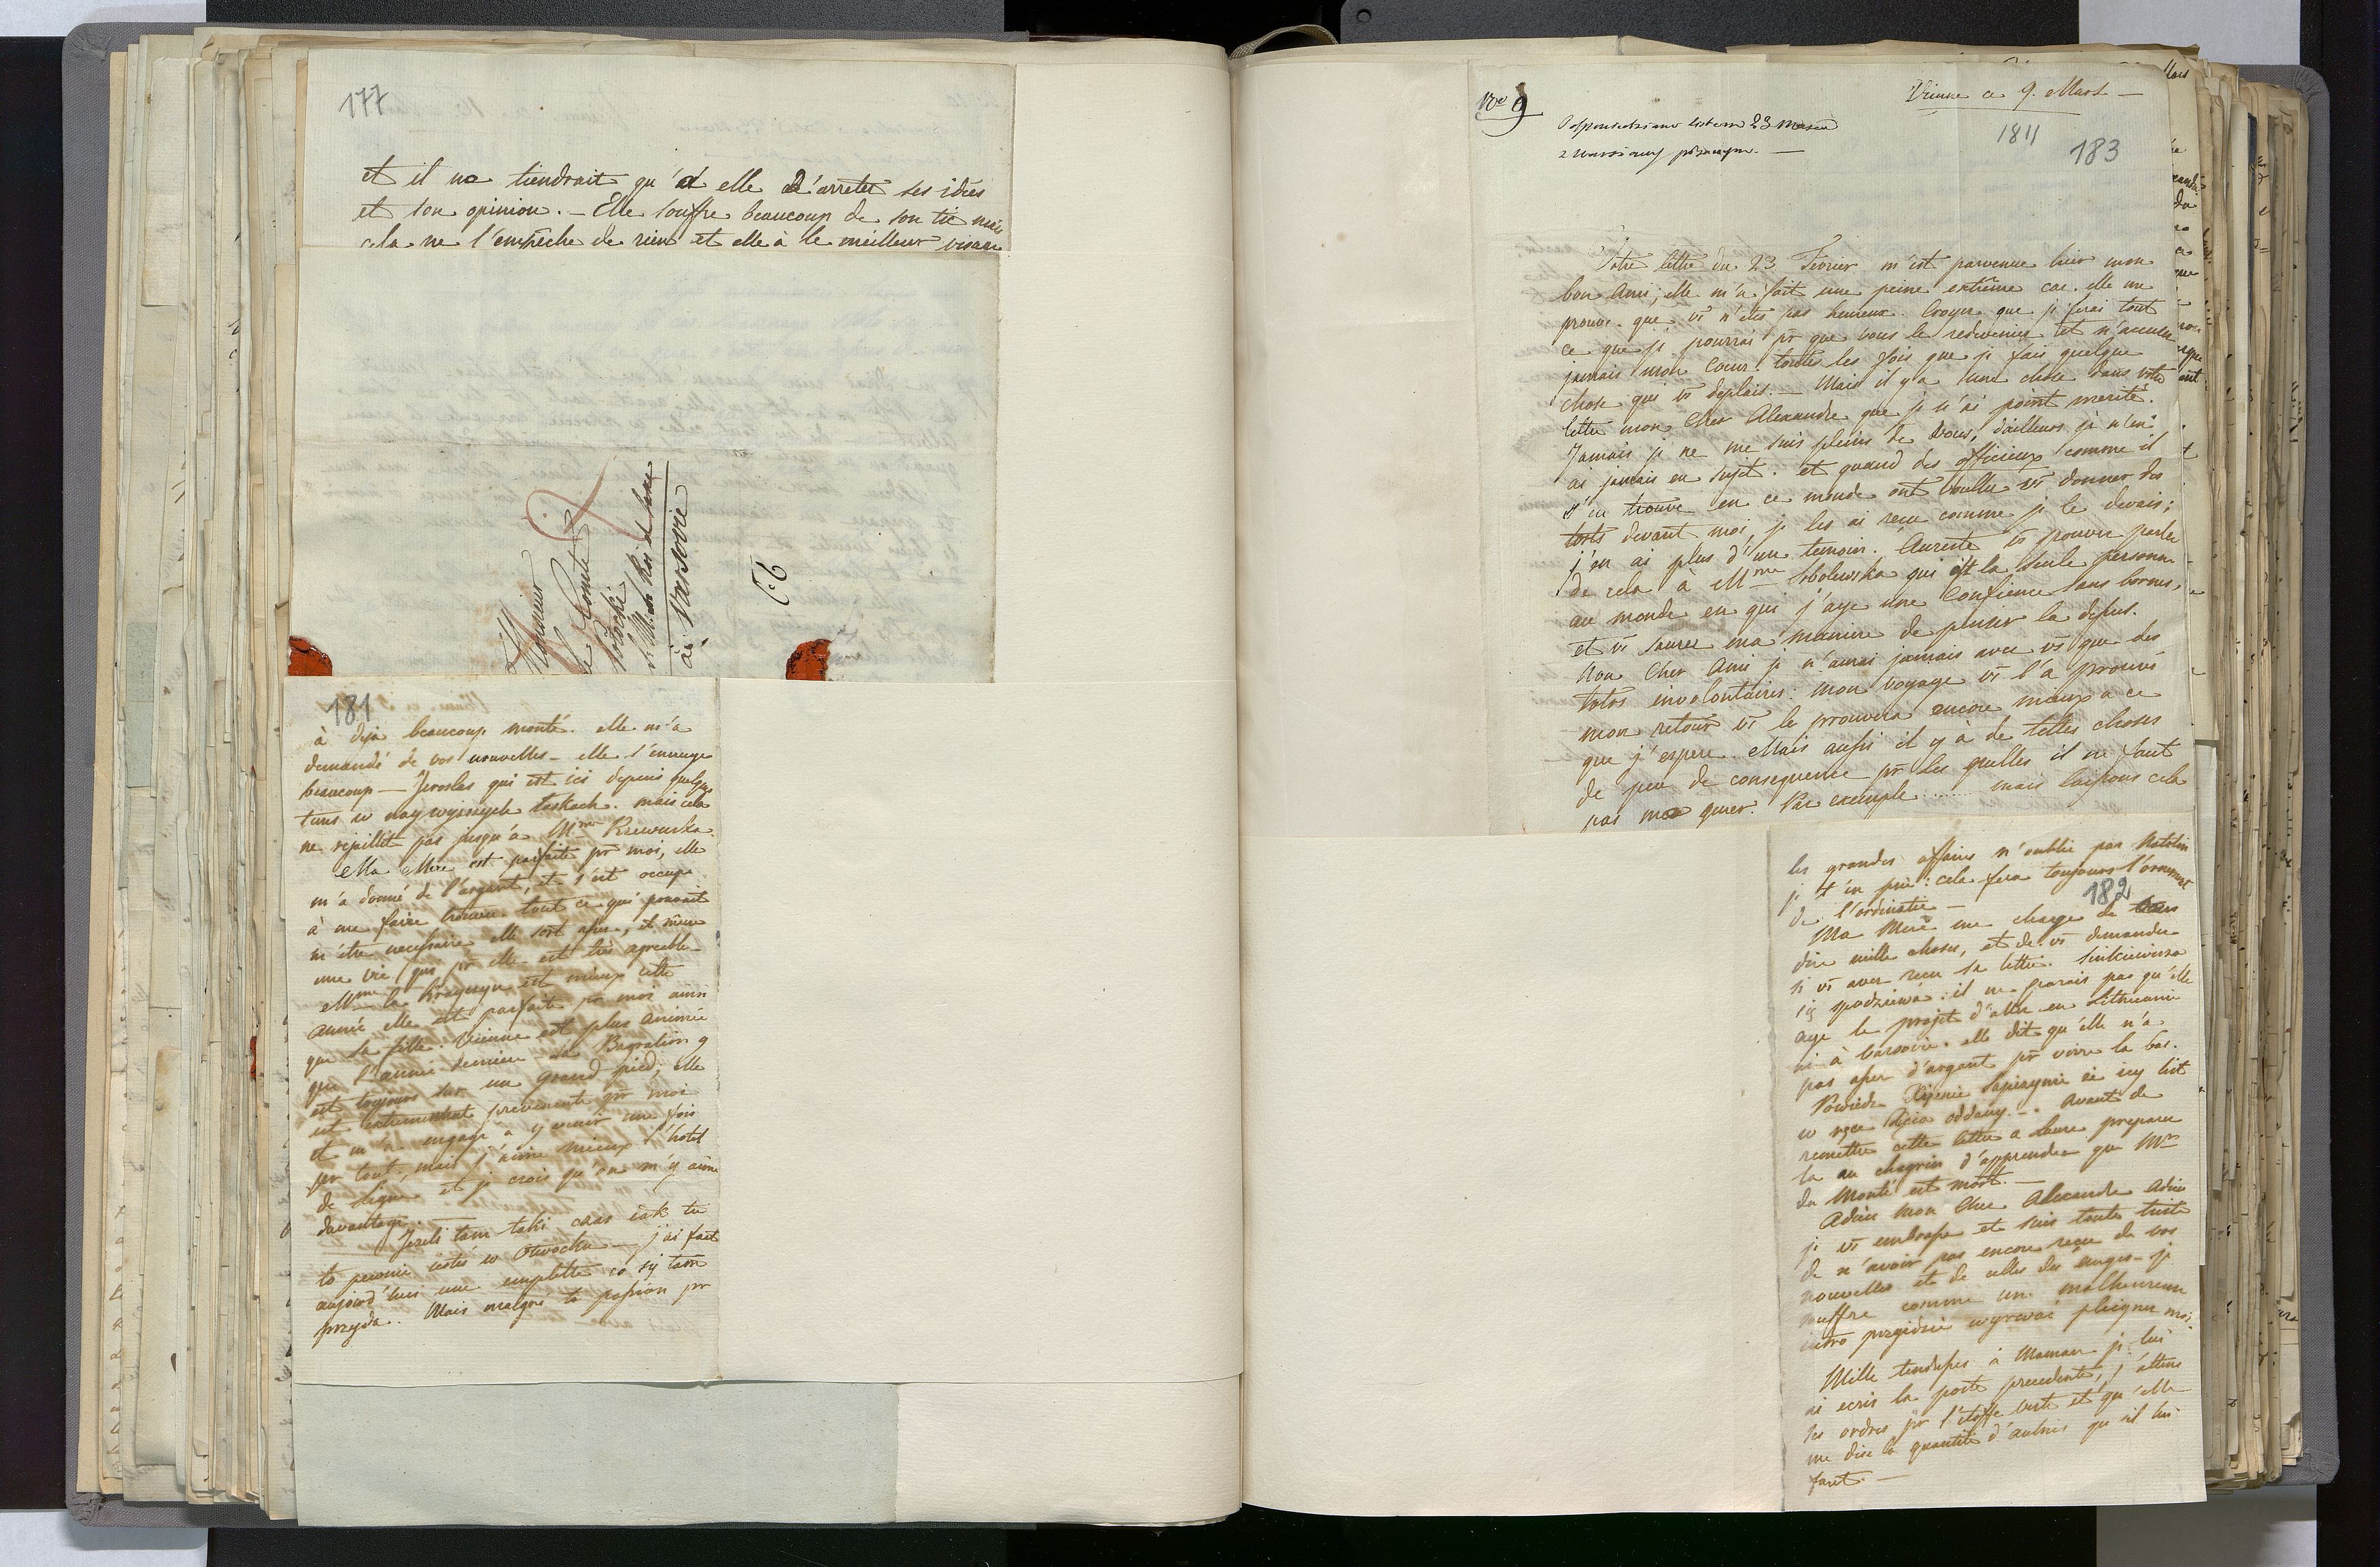 177
et il ne tiendrait qu'à elle d'arreter ses idées
et son opinion. - Elle souffre beaucoup de son tic mais
cela ne l'empêche de rien et elle à le meilleur visage
A Monsieur
le Comte
Potocki
à Varsovie
181
à deja beaucoup monté. elle m'a
demandé de vos nouvelles - elle s'ennuye
beaucoup - Jeroslas qui est ici depuis quelque
tems w naywyższych łaskach. mais cela
ne rejaillit pas jusqu'à Mme Rzewuska.
Ma Mere est parfaite pr moi, elle
m'a donné de l'argent, et s'est occupé
à me faire trouver tout ce qui pouvait
m'être necessaire elle sort assez, et mène
une vie qui pr elle est très agreable.
Mme la
année elle est parfaite pr moi ainsi
que sa fille. Vienne est plus animée
que l'année derniere. la Bagration
est toujours sur un grand pied; elle
est extremement prevenente pr moi
et m'a engagé à y venir une fois
pr tout, mais j'aime mieux l'hotel
de Ligne et je crois qu'on m'y aime
davantage.
Jezeli tam taki czas iak tu
to pewnie iesteś w Otwocku - j'ai fait
aujourd'hui une emplette co się tam
przyda. Mais malgré ta passion pr
No 9
Vienne ce 9. Mars -
1811
183
Odpowiedziano listem 23 Marca
z Warszawy pisanym. -
Votre lettre du 23 Fevrier m'est parvenue hier mon
bon Ami; elle m'a fait une peine extrême car elle me
prouve que vs n'etes pas heureux. Croyez que je ferai tout
ce que je pourrai pr que vous le redeveniez et n'accusez
jamais mon Coeur toutes les fois que je fais quelque
chose qui vs deplait. - Mais il y a une chose dans votre
lettre mon Cher Alexandre que je n'ai point merité.
Jamais je ne me suis pleins de Vous, d'ailleurs je n'en
ai jamais eu sujet. et quand des officieux comme il
s'en trouve en ce monde ont voullu vs donner des
torts devant moi, je les ai reçu comme je le devais;
j'en ai plus d'un temoin. Aureste vs pouvez parler
de cela à Mme Sobolewska qui est la seule personne
au monde en qui j'aye une Confience sans bornes,
et vs saurez ma maniere de penser la dessus.
Mon Cher Ami je n'aurai jamais avec vs que des
torts involontaires: mon voyage vs l'a prouvé
mon retour vs le prouvera encore mieux a ce
que j'espere. Mais aussi il y à de telles choses
de peu de consequence pr les quelles il ne faut
pas me gener. Par exemple ...... mais laissons cela
182
les grandes affaires n'oublie pas Natolin
je t'en prie: cela fera toujours l'ornement
de l'ordinatie -
Ma Mere me charge de vous
dire mille choses, et de vs demander
si vs avez reçu sa lettre.
się spodziewa: il ne parais pas qu'elle
aye le projet d'aller en Lithuanie
ni à Varsovie. elle dit qu'elle n'a
pas assez d'argent pr vivre la bas.
Powiedz Xiężnie Sapieżynie że iey list
w ręce Xięcia oddany. - avant de
remettre cette lettre a Laure prepare
la au chagrin d'apprendre que Mr
du Monté est mort. -
Adieu mon Cher Alexandre Adieu
je vs embrasse et suis toute triste
de n'avoir pas encore reçu de vos
nouvelles et de celles des anges - je
souffre comme une malheureuse
iutro przyidzie wyrwać pleigner moi.
Mille tendresses à Maman je lui
ai ecris la poste precedente, j'attens
ses ordres pr l'étoffe verte et qu'elle
me dise la quantité d'aulnes qu'il lui
faut. -